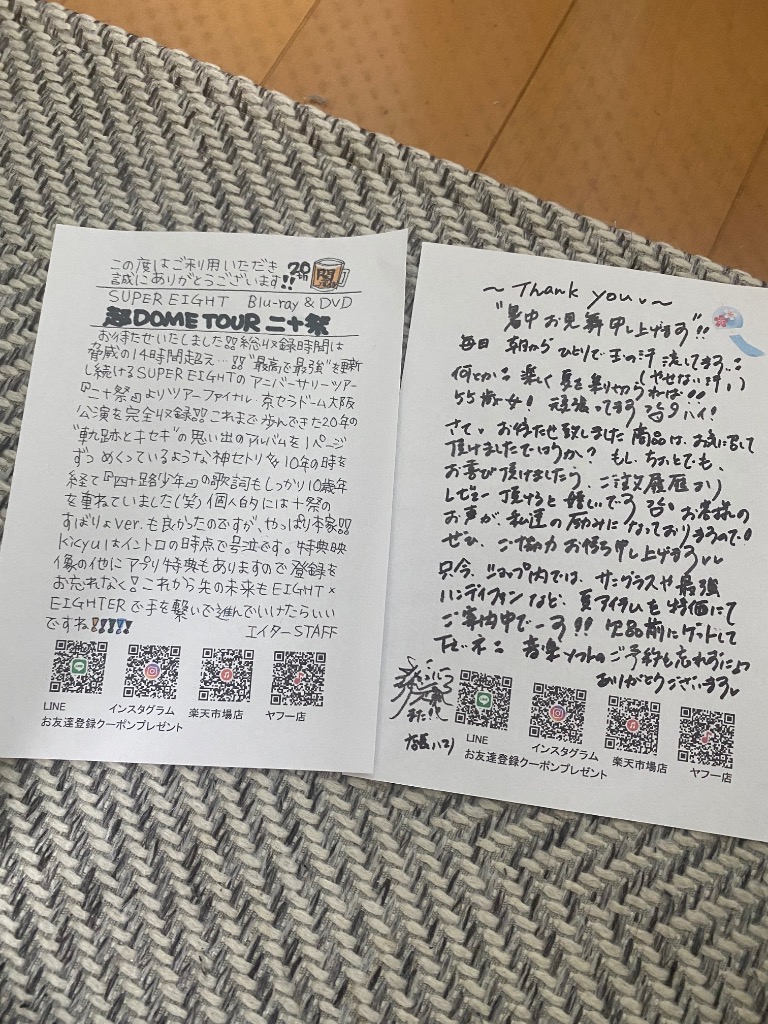 この度はご利用いただき
誠にありがとうございます!!
20th
SUPER EIGHT Blu-ray & DVD
超DOME TOUR 二十祭
お待たせいたしました!! 総収録時間は
脅威の14時間超え…!! "最高で最強"を更新
し続けるSUPER EIGHTのアニバーサリーツアー
『二十祭』よりツアーファイナル 京セラドーム大阪
公演を完全収録!! これまで歩んできた20年の
"軌跡とキセキ"の思い出のアルバムを1ページ
ずつめくっているような神セトリ 10年の時を
経て『四十路少年』の歌詞もしっかり10歳年
を重ねていました(笑) 個人的には十祭の
すばりょver.も良かったのですが、やっぱり本家!!
kicyuはイントロの時点で号泣です。特典映
像の他にアプリ特典もありますので登録を
お忘れなく! これから先の未来もEIGHT×
EIGHTERで手を繋いで進んでいけたらいい
ですね!!!!!
エイターSTAFF
LINE
インスタグラム
楽天市場店
ヤフー店
お友達登録クーポンプレゼント
~Thank you~
"暑中お見舞申し上げます"!!
毎日 朝から ひとりで 玉の汗 流してます
(やせない汗)
何とか 楽しく 夏を乗りきらねば!!
55歳女! 頑張ってますハイ!
さて、お待たせ致しました商品は、お気に召して
頂けましたでしょうか? もし、ちょっとでも、
お喜び頂けましたら、ご注文履歴より
レビュー頂けると嬉しいです お客様の
お声が、私達の励みになっておりますので!
ぜひ、ご協力お待ち申し上げます
只今、ショップ内では、サングラスや最強
ハンディファンなど、夏アイテムを特価にて
ご案内中でーす!! 欠品前にゲットして
下さいネ 音楽ソフトのご予約も忘れずに♪
ありがとうございます
また!!
LINE
インスタグラム
楽天市場店
ヤフー店
お友達登録クーポンプレゼント